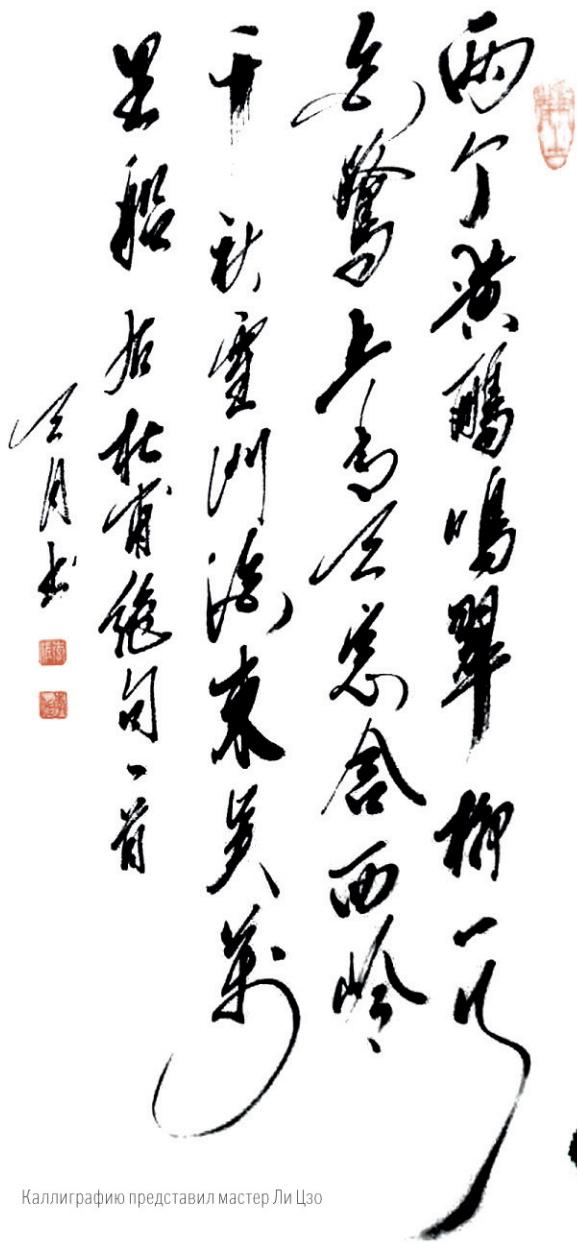 兩个黄鸝鳴翠柳一行
白鷺上青天窓含西岭
千秋雪门泊東吴萬
里船 右杜甫絕句一首
月书
Каллиграфию представил мастер Ли Цзо